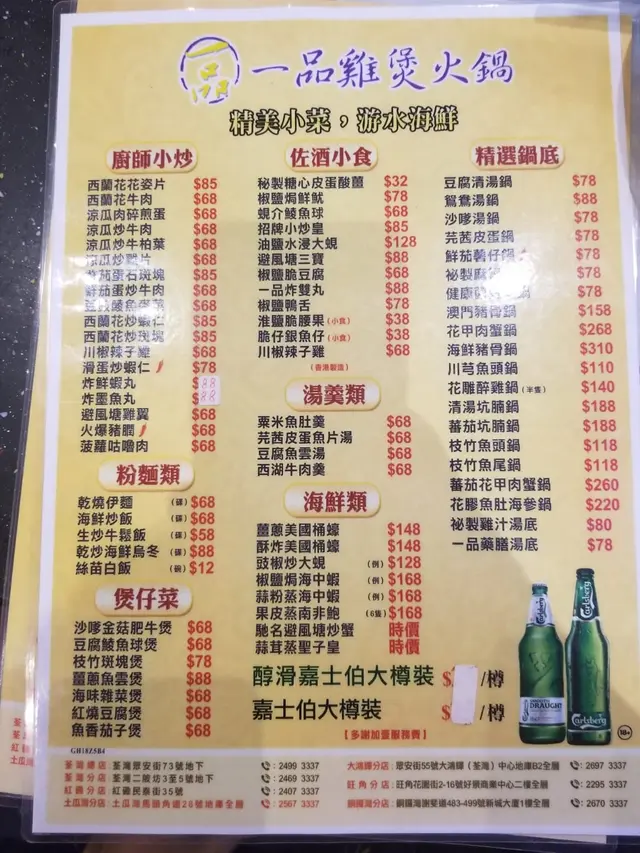 一品
一品雞煲火鍋
精美小菜，游水海鮮
廚師小炒
西蘭花花姿片 $85
西蘭花牛肉 $68
涼瓜肉碎煎蛋 $68
涼瓜炒牛肉 $68
涼瓜炒牛柏葉 $68
涼瓜炒雞片 $68
鮮茄蛋石斑塊 $85
鮮茄蛋炒牛肉 $68
$68
西蘭花炒蝦仁 $85
西蘭花炒斑塊 $85
川椒辣子雞 $68
滑蛋炒蝦仁 $78
炸鮮蝦丸 $88
炸墨魚丸 $88
避風塘雞翼 $68
火爆豬膶 $68
菠蘿咕嚕肉 $68
粉麵類
乾燒伊麵 (碟) $68
海鮮炒飯 (碟) $68
生炒牛鬆飯 (碟) $58
乾炒海鮮烏冬 (碟) $88
絲苗白飯 (碗) $12
煲仔菜
沙嗲金菇肥牛煲 $68
豆腐鯪魚球煲 $68
枝竹斑塊煲 $78
薑蔥魚雲煲 $88
海味雜菜煲 $68
紅燒豆腐煲 $68
魚香茄子煲 $68
佐酒小食
秘製糖心皮蛋酸薑 $32
椒鹽焗鮮魷 $78
蜆介鯪魚球 $68
招牌小炒皇 $85
油鹽水浸大蜆 $128
避風塘三寶 $88
椒鹽脆豆腐 $68
一品炸雙丸 $88
椒鹽鴨舌 $78
淮鹽脆腰果 (小食) $38
脆仔銀魚仔 (小食) $38
川椒辣子雞 $68
(香港製造)
湯羹類
粟米魚肚羹 $68
芫茜皮蛋魚片湯 $68
豆腐魚雲湯 $68
西湖牛肉羹 $68
海鮮類
薑蔥美國桶蠔 $148
酥炸美國桶蠔 $148
豉椒炒大蜆 (例) $128
椒鹽焗海中蝦 (例) $168
蒜粉蒸海中蝦 (例) $168
果皮蒸南非鮑 (6隻) $168
馳名避風塘炒蟹 時價
蒜茸蒸聖子皇 時價
醇滑嘉士伯大樽裝 $ /樽
嘉士伯大樽裝 $ /樽
【多謝加壹服務費】
精選鍋底
豆腐清湯鍋 $78
鴛鴦湯鍋 $88
沙嗲湯鍋 $78
芫茜皮蛋鍋 $78
鮮茄薯仔鍋 $78
祕製麻 $78
健康 鍋 $78
澳門豬骨鍋 $158
花甲肉蟹鍋 $268
海鮮豬骨鍋 $310
川芎魚頭鍋 $110
花雕醉雞鍋 (半隻) $140
清湯坑腩鍋 $188
蕃茄坑腩鍋 $188
枝竹魚頭鍋 $118
枝竹魚尾鍋 $118
蕃茄花甲肉蟹鍋 $260
花膠魚肚海參鍋 $220
祕製雞汁湯底 $80
一品藥膳湯底 $78
Carlsberg
DRAUGHT
Carlsberg
18+
GH18Z5B4
荃灣總店：荃灣眾安街73號地下 ：2499 3337
荃灣分店：荃灣二陂坊3至5號地下 ：2469 3337
紅磡分店：紅磡民泰街35號 ：2407 3337
土瓜灣分店：土瓜灣馬頭角道26號地庫全層 ：2567 3337
大鴻輝分店：眾安街55號大鴻輝（荃灣）中心地庫B2全層 ：2697 3337
旺角分店：旺角花園街2-16號好景商業中心二樓全層 ：2295 3337
銅鑼灣分店：銅鑼灣謝斐道483-499號新城大廈1樓全層 ：2670 3337